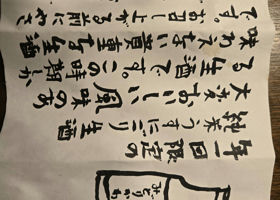 年一回限定の
純米うすにごり生酒
大変おいしい風味のあ
る生酒です。この時期しか
味わえない貴重な生酒
です。お召し上がる前に
みどりかわ